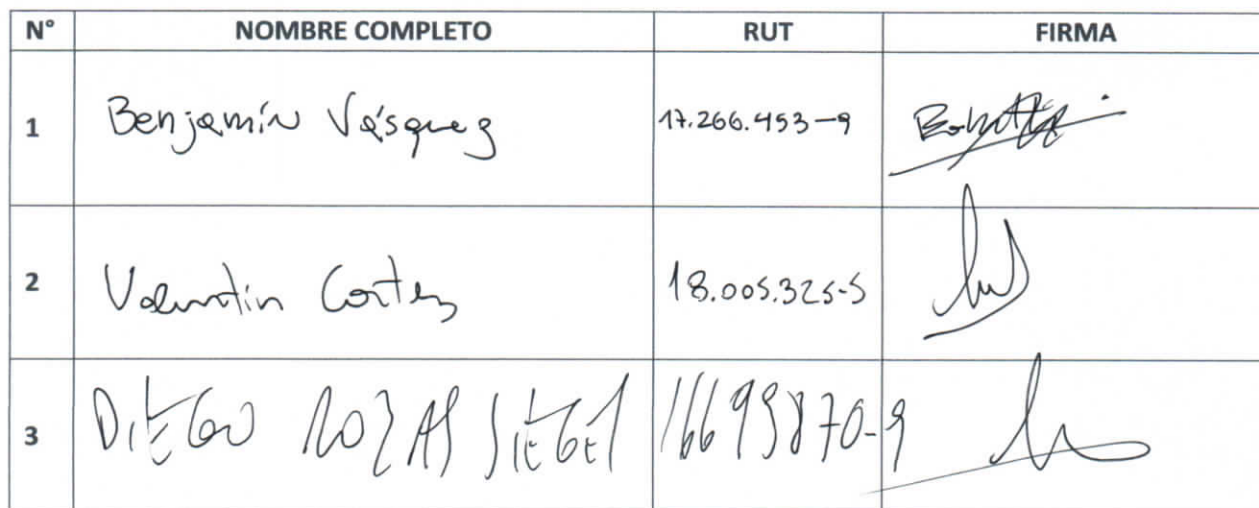 N° NOMBRE COMPLETO RUT FIRMA
1 Benjamín Vásquez 17.266.453-9
2 Valentin Cortez 18.005.325-5
3 DIEGO ROZAS SIEGEL 16693870-9